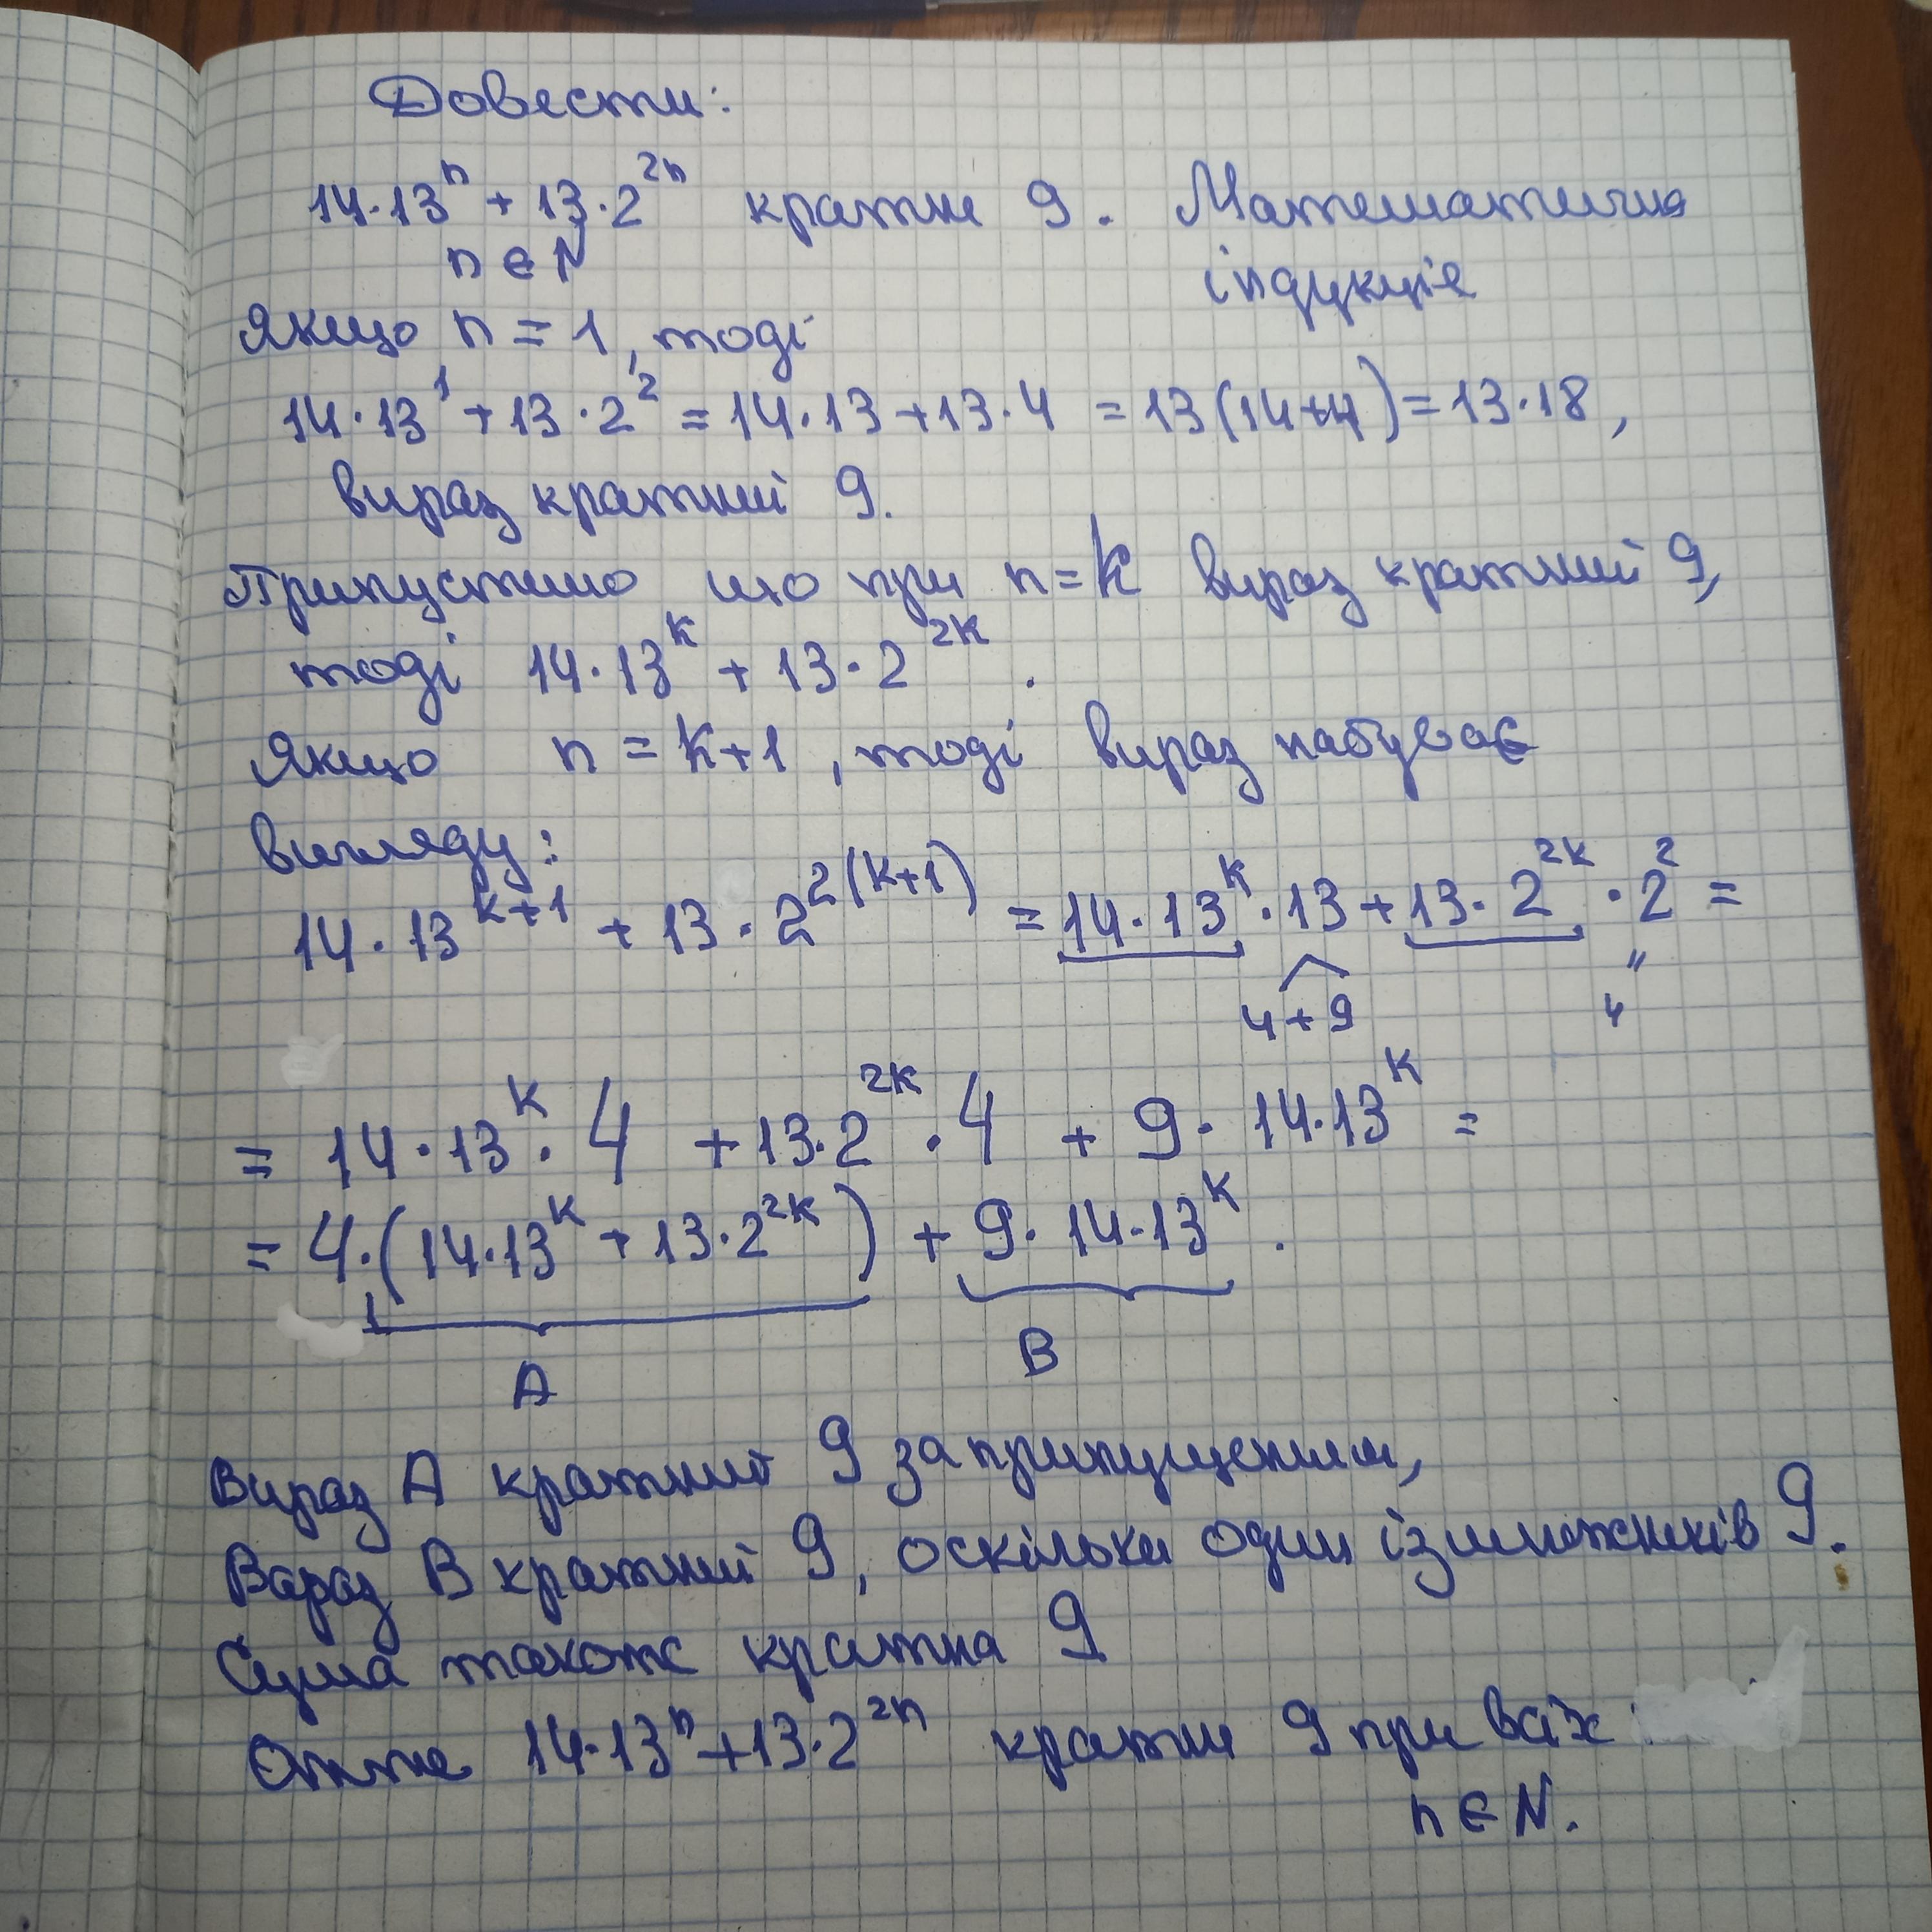 Довести:
14·13ⁿ + 13·2²ⁿ кратне 9. Математична
n ∈ N індукція
Якщо n = 1, тоді
14·13¹ + 13·2² = 14·13 + 13·4 = 13(14+4) = 13·18,
вираз кратний 9.
Припустимо що при n = k вираз кратний 9,
тоді 14·13ᵏ + 13·2²ᵏ.
Якщо n = k+1, тоді вираз набуває
вигляду:
14·13ᵏ⁺¹ + 13·2²⁽ᵏ⁺¹⁾ = 14·13ᵏ·13 + 13·2²ᵏ·2² =
4+9 " 4
= 14·13ᵏ·4 + 13·2²ᵏ·4 + 9·14·13ᵏ =
= 4·(14·13ᵏ + 13·2²ᵏ) + 9·14·13ᵏ.
A B
Вираз A кратний 9 за припущенням,
Вараз B кратний 9, оскільки один із множників 9.
Сума також кратна 9
Отже 14·13ⁿ + 13·2²ⁿ кратне 9 при всіх
n ∈ N.